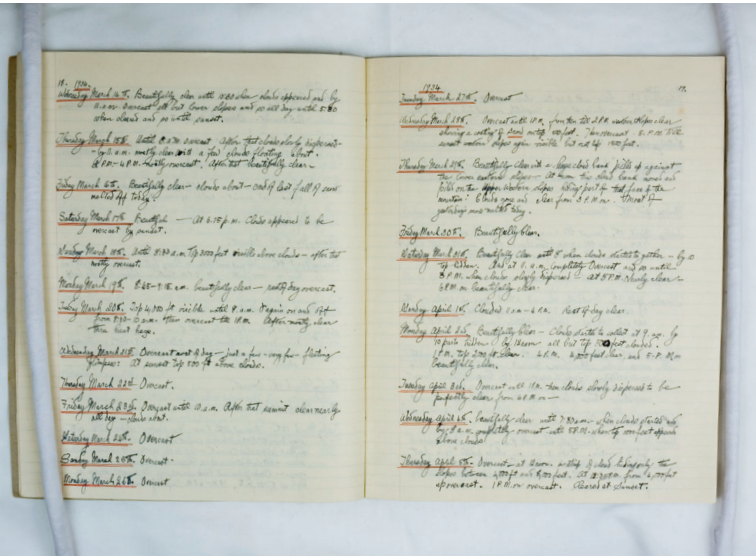 18. 1934.
Wednesday March 14th. Beautifully clear until 10.30 when clouds appeared and by
11 a.m. overcast all but lower slopes and so all day until 5.30
when clouds and so until sunset.
Thursday March 15th. Until 8 a.m. overcast. After that clouds slowly dispersed
- by 11 a.m. mostly clear with a few clouds floating about.
2 P.M - 4 P.M. mostly overcast. After that beautifully clear -
Friday March 16th. Beautifully clear - clouds about - end of last fall of snow
melted off today.
Saturday March 17th Beautiful - At 6.15 p.m. Clouds appeared to be
overcast by sunset.
Sunday March 18th. Until 9.30 a.m. Top 3000 feet visible above clouds - after that
mostly overcast.
Monday March 19th. 8.45 - 9.15 a.m. beautifully clear - mostly day overcast.
Tuesday March 20th. Top 4,000 ft visible until 9 a.m. again on and off
from 9.30 - 10 a.m. after overcast till 12 P.M. After mostly clear
thru heat haze.
Wednesday March 21st. Overcast most of day - just a few - very few - fleeting
glimpses. At sunset Top 500 ft above clouds.
Thursday March 22nd Overcast.
Friday March 23rd. Overcast until 10 a.m. After that summit clear nearly
all day - clouds about.
Saturday March 24th. Overcast
Sunday March 25th. Overcast.
Monday March 26th. Overcast
1934 19.
Tuesday March 27th. Overcast
Wednesday March 28th. Overcast until 12 P.M. from then till 2 P.M. western slopes clear
showing a coating of snow 100 feet. Then overcast. 5. P.M. till
sunset western slopes again visible but not top 1000 feet.
Thursday March 29th. Beautifully clear with a large cloud bank piled up against
the lower eastern slopes - At noon this cloud bank moved and
piled on the upper western slopes hiding part of that face of the
mountain. Clouds gone and clear from 3 P.M. - Most of
yesterdays snow melted today.
Friday March 30th. Beautifully clear.
Saturday March 31st Beautifully clear until 8 when clouds started to gather - by 10
top hidden. And at 11 a.m. completely overcast and so until
3 P.M. when clouds slowly dispersed - at 5 P.M. nearly clear -
6 P.M. on beautifully clear
Sunday April 1st. Clouded 11 a.m - 4 P.M. Rest of day clear.
Monday April 2nd. Beautifully clear - Clouds started to collect at 9 a.m. by
10 peaks hidden by noon all but top 500 feet clouded.
1 P.M. top 2,000 ft clear. 4 P.M. 4,000 feet clear, and 5. P.M. on
beautifully clear.
Tuesday April 3rd. Overcast until 12 P.M. then clouds slowly dispersed to be
perfectly clear from 4 P.M. on -
Wednesday April 4th. beautifully clear until 7.30 a.m. when clouds started and
by 9 a.m. completely overcast until 5 P.M. when top 1000 feet appeared
above clouds.
Thursday April 5th. Overcast - at noon a strip of cloud hiding only the
slopes between 4,000 feet and 9,000 feet. At from 6,000 feet
up overcast. 1 P.M. on overcast. Cleared at Sunset.